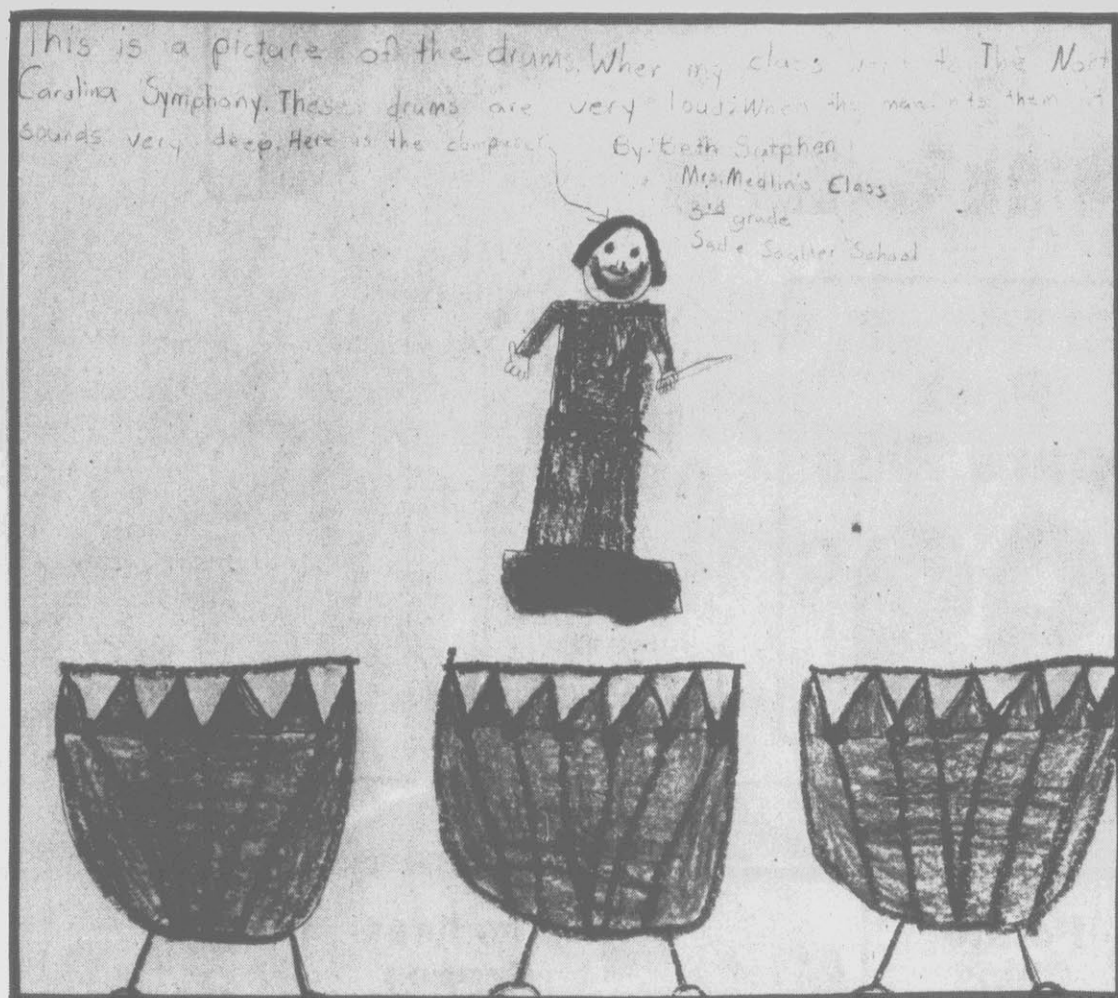 This is a picture of the drums. When my class went to The Nort
Carolina Symphony. These drums are very loud. When the man hits them it
sounds very deep. Here is the composer
By: Beth Sutphen
Mrs. Medlin's Class
3rd grade
Sadie Saulter School